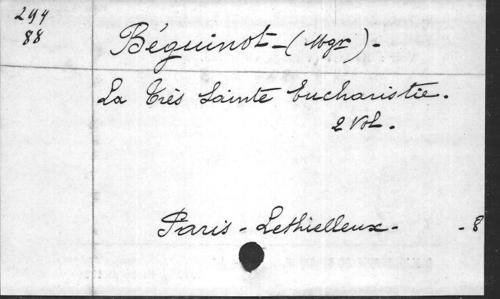 244
88
Béguinot - (Mgr) -
La Très Sainte Eucharistie.
2 Vol.
Paris - Lethielleux - - 8